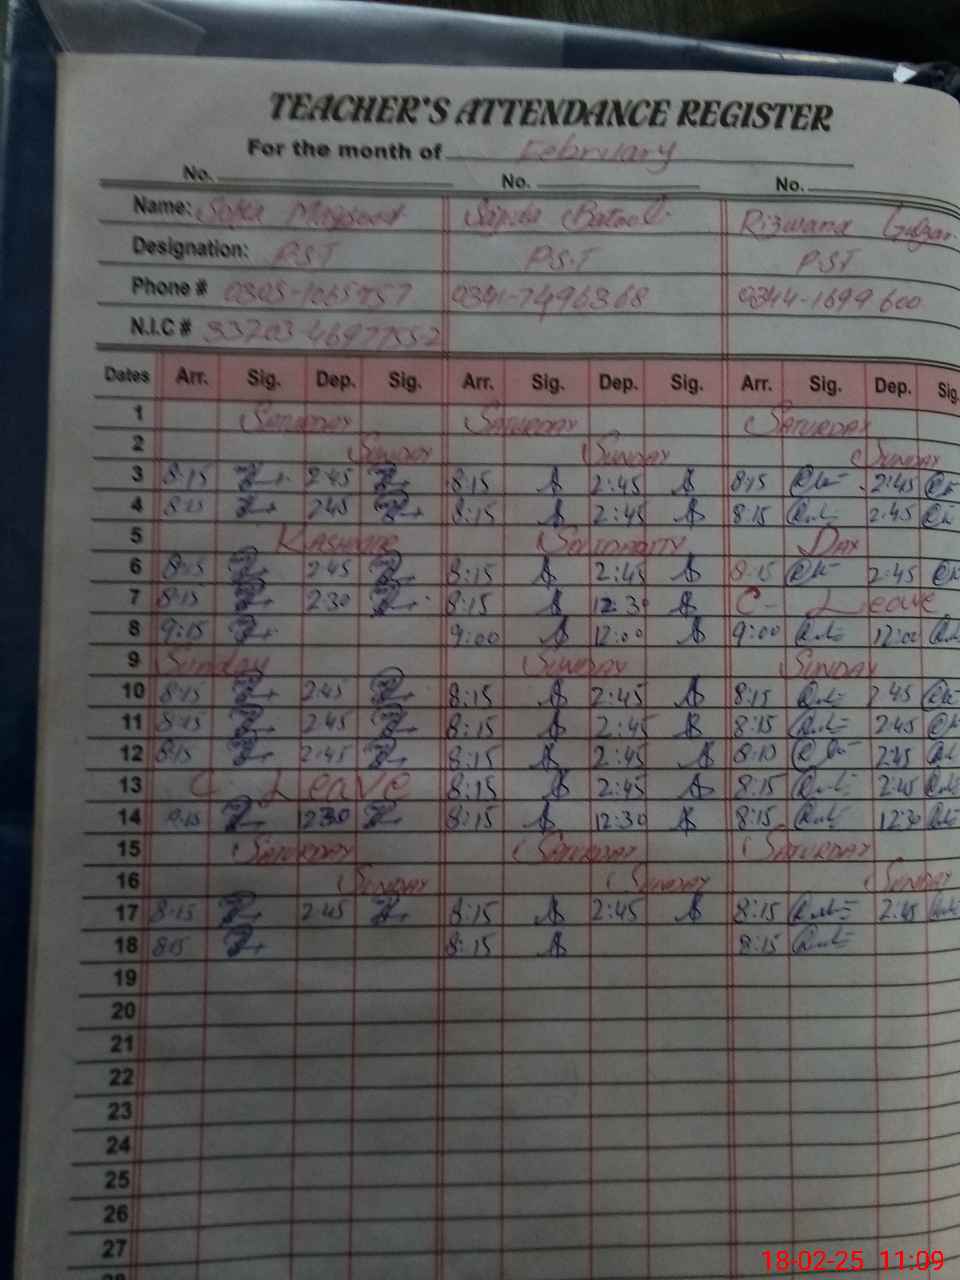 TEACHER'S ATTENDANCE REGISTER
For the month of February
No. No. No.
Name: Sofia Maqsood Sajida Batool Rizwana Gulzar
Designation: P.S.T P.S.T P.S.T
Phone # 0341-7496368 0344-1699600
N.I.C #
Dates Arr. Sig. Dep. Sig. Arr. Sig. Dep. Sig. Arr. Sig. Dep. Sig.
1 SATURDAY SATURDAY SATURDAY
2 SUNDAY SUNDAY SUNDAY
3 8:15 2:45 8:15 2:45 8:15 2:45
4 8:15 2:45 8:15 2:45 8:15 2:45
5 KASHMIR SOLIDARITY DAY
6 8:15 2:45 8:15 2:45 8:15 2:45
7 8:15 2:30 8:15 12:30 C- Leave
8 9:15 9:00 12:00 9:00 12:00
9 Sunday SUNDAY SUNDAY
10 8:15 2:45 8:15 2:45 8:15 2:45
11 8:15 2:45 8:15 2:45 8:15 2:45
12 8:15 2:45 8:15 2:45 8:15 2:45
13 C. Leave 8:15 2:45 8:15 2:45
14 1230 8:15 12:30 8:15 1230
15 SATURDAY SATURDAY SATURDAY
16 SUNDAY SUNDAY SUNDAY
17 8:15 2:45 8:15 2:45 8:15 2:45
18 8:15 8:15 8:15
19
20
21
22
23
24
25
26
27
18-02-25 11:09